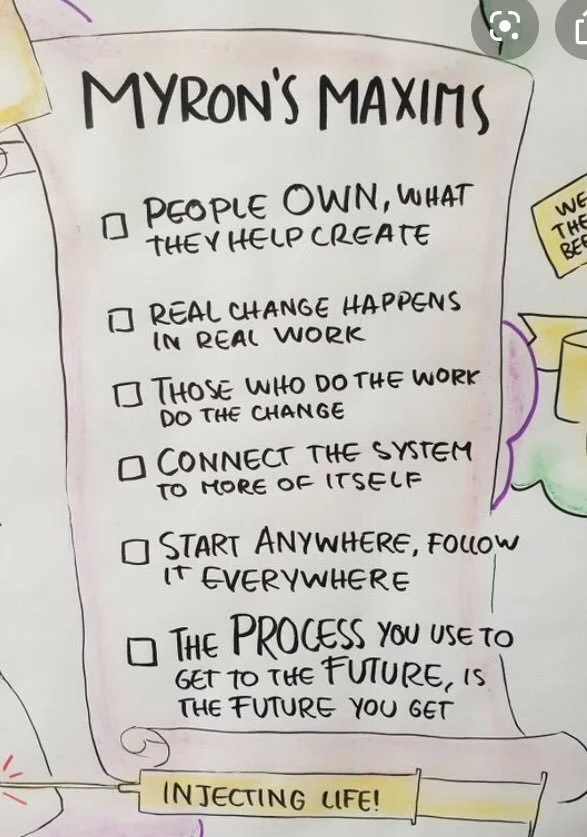 MYRON'S MAXIMS
PEOPLE OWN, WHAT
THEY HELP CREATE
REAL CHANGE HAPPENS
IN REAL WORK
THOSE WHO DO THE WORK
DO THE CHANGE
CONNECT THE SYSTEM
TO MORE OF ITSELF
START ANYWHERE, FOLLOW
IT EVERYWHERE
THE PROCESS YOU USE TO
GET TO THE FUTURE, IS
THE FUTURE YOU GET
INJECTING LIFE!
WE
THE